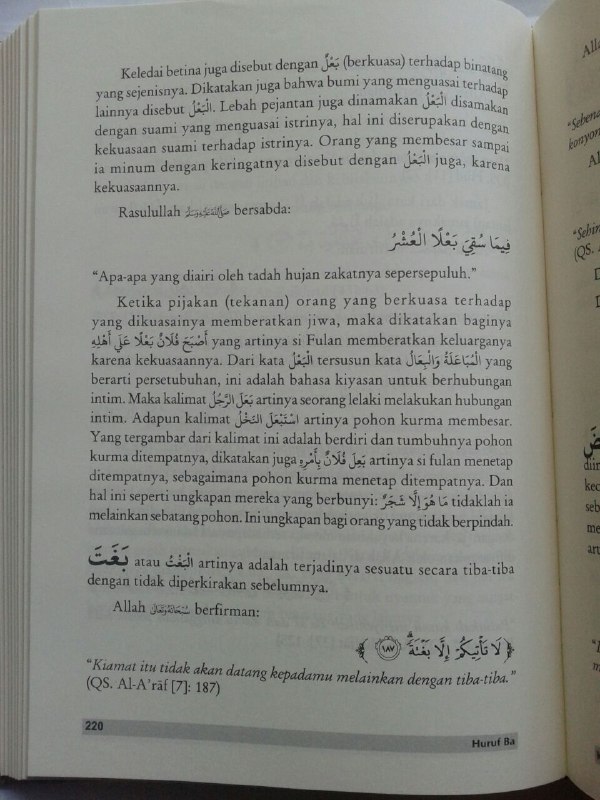 Keledai betina juga disebut dengan بَعْلٌ (berkuasa) terhadap binatang
yang sejenisnya. Dikatakan juga bahwa bumi yang menguasai terhadap
lainnya disebut الْبَعْلُ. Lebah pejantan juga dinamakan الْبَعْلُ disamakan
dengan suami yang menguasai istrinya, hal ini diserupakan dengan
kekuasaan suami terhadap istrinya. Orang yang membesar sampai
ia minum dengan keringatnya disebut dengan الْبَعْلُ juga, karena
kekuasaannya.
Rasulullah ﷺ bersabda:
فِيمَا سُقِيَ بَعْلًا الْعُشْرُ
“Apa-apa yang diairi oleh tadah hujan zakatnya sepersepuluh.”
Ketika pijakan (tekanan) orang yang berkuasa terhadap
yang dikuasainya memberatkan jiwa, maka dikatakan baginya
أَصْبَحَ فُلَانٌ بَعْلًا عَلَى أَهْلِهِ yang artinya si Fulan memberatkan keluarganya
karena kekuasaannya. Dari kata الْبَعْلُ tersusun kata الْمُبَاعَلَةُ وَالْبِعَالُ yang
berarti persetubuhan, ini adalah bahasa kiyasan untuk berhubungan
intim. Maka kalimat بَعَلَ الرَّجُلُ artinya seorang lelaki melakukan hubungan
intim. Adapun kalimat اسْتَبْعَلَ النَّخْلُ artinya pohon kurma membesar.
Yang tergambar dari kalimat ini adalah berdiri dan tumbuhnya pohon
kurma ditempatnya, dikatakan juga بَعِلَ فُلَانٌ بِأَمْرِهِ artinya si fulan menetap
ditempatnya, sebagaimana pohon kurma menetap ditempatnya. Dan
hal ini seperti ungkapan mereka yang berbunyi: مَا هُوَ إِلَّا شَجَرٌ tidaklah ia
melainkan sebatang pohon. Ini ungkapan bagi orang yang tidak berpindah.
بَغَتَ atau الْبَغْتُ artinya adalah terjadinya sesuatu secara tiba-tiba
dengan tidak diperkirakan sebelumnya.
Allah سُبْحَانَهُ وَتَعَالَى berfirman:
﴿ لَا تَأْتِيكُمْ إِلَّا بَغْتَةً ۗ ١٨٧ ﴾
“Kiamat itu tidak akan datang kepadamu melainkan dengan tiba-tiba.”
(QS. Al-A’rāf [7]: 187)
220
Huruf Ba